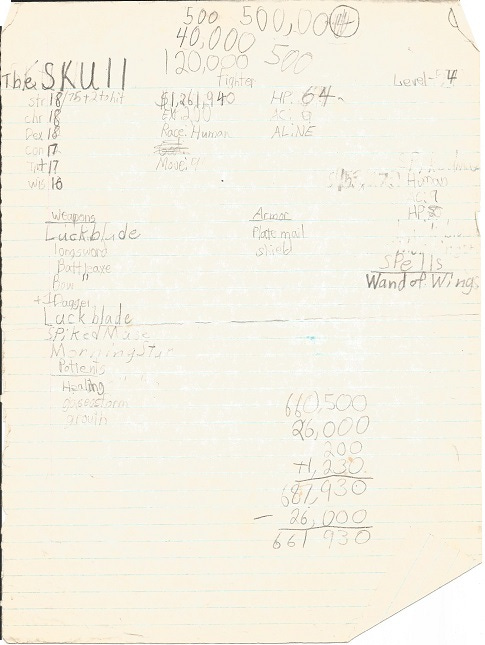 500 500,00
40,000
120,000 500
The SKUll
fighter
Level 4
Str 18/75+2 to hit
$1,261,940
HP. 64
chr 18
AC. 9
Dex 18
Race. Human
ALINE
con 17
Int 17
Move.
Wis 16
Human
HP
Weapons
Armor
Luckblade
Plate mail
longsword
shield
Battleaxe
Spells
Bow "
Wand of Wings
+1 Dagger
Luckblade
Spiked Mase
Morningstar
Potients
Healing
growth
660,500
26,000
200
+1,230.
687,930
- 26,000
661 930